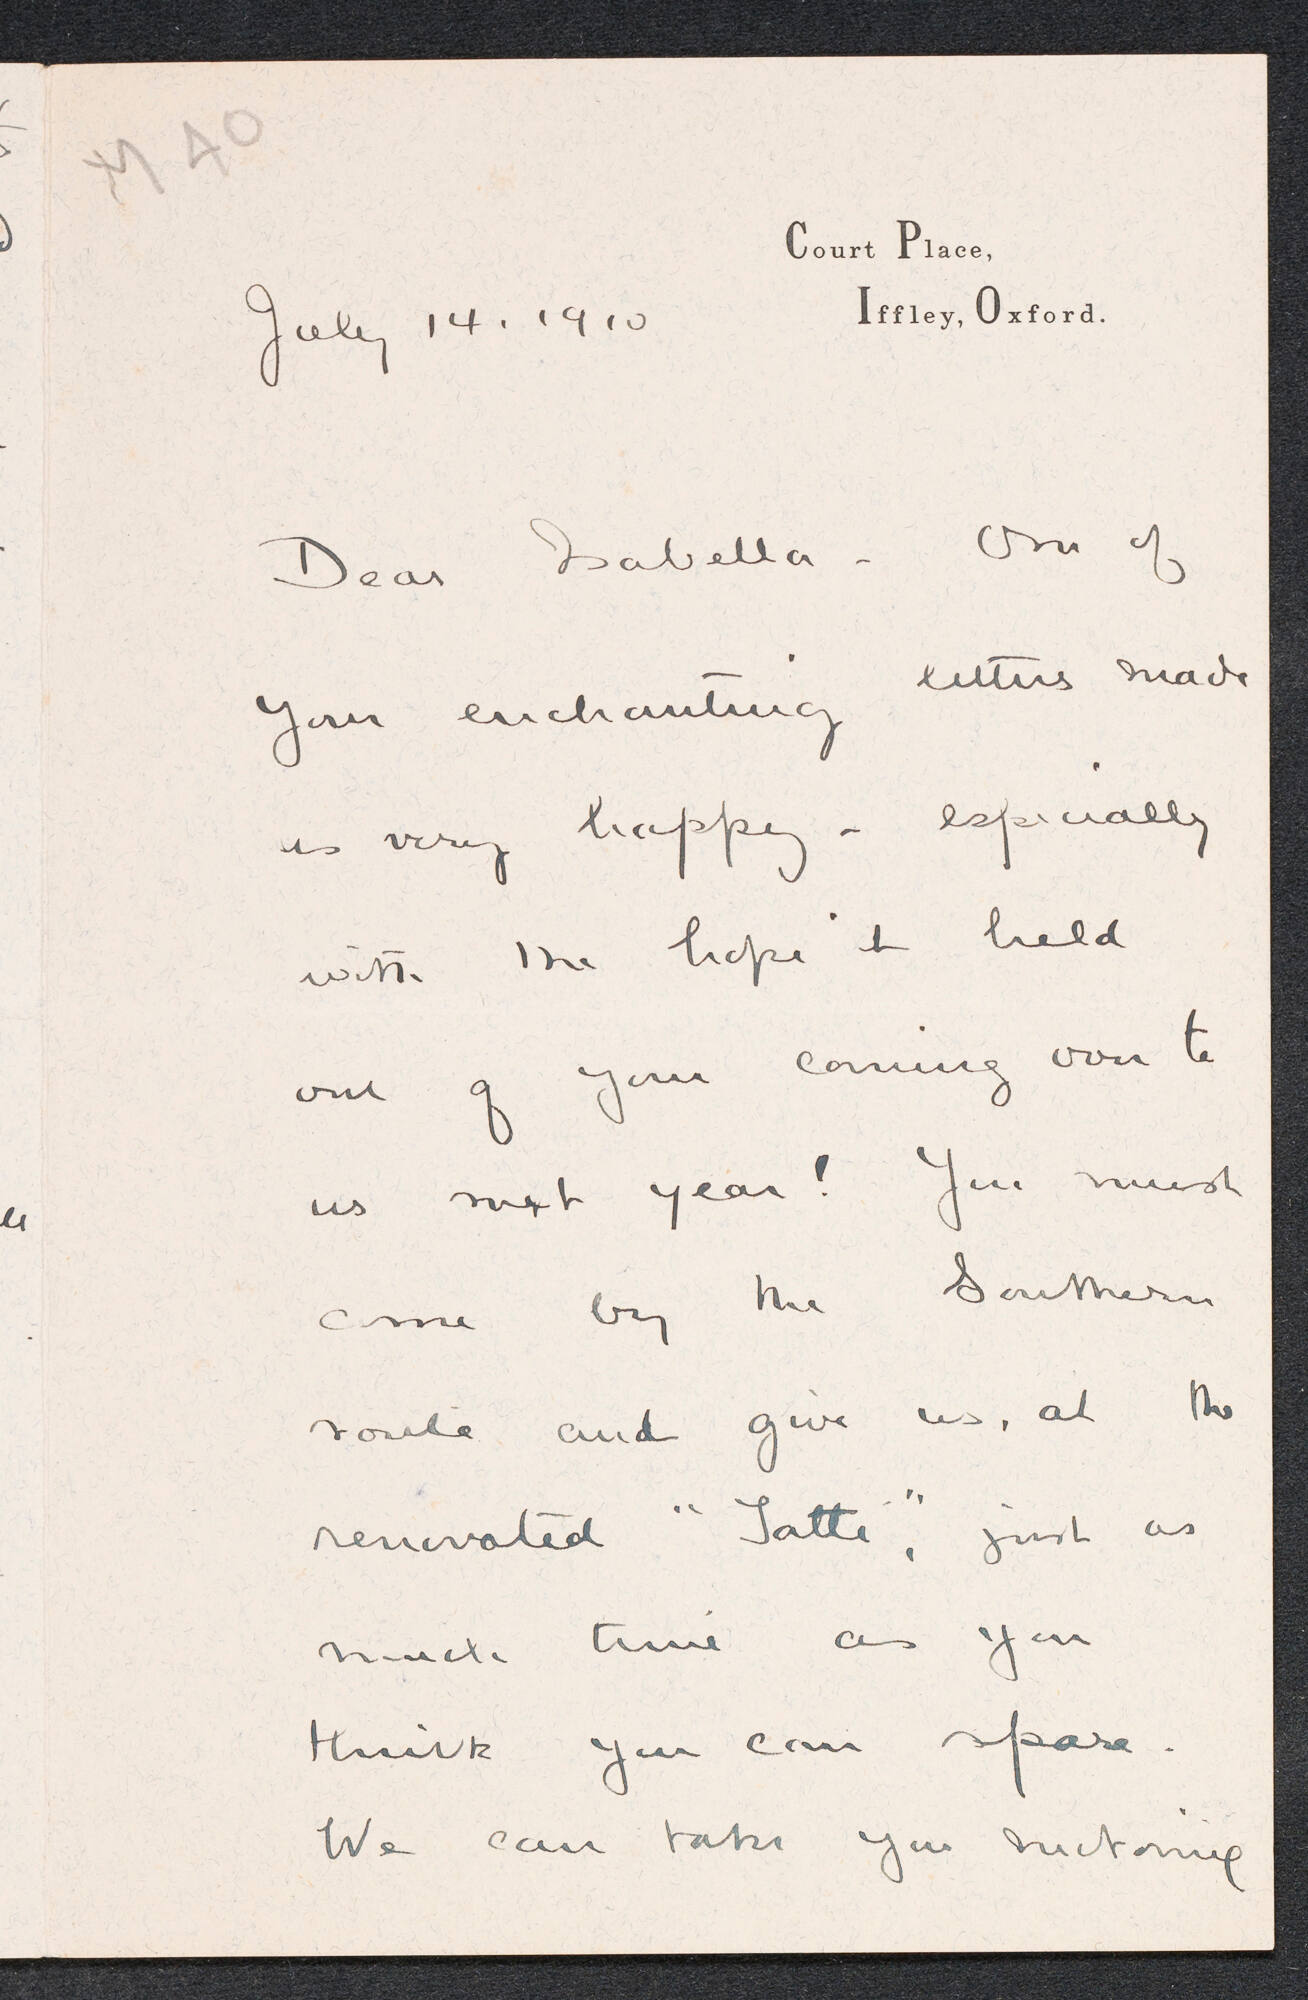 Court Place,
Iffley, Oxford.
July 14. 1910
Dear Isabella - One of
your enchanting letters made
us very happy - especially
with the hope it held
out of your coming over to
us next year! You must
come by the Southern
route and give us, at the
renovated "Tatti", just as
much time as you
think you can spare.
We can take you motoring